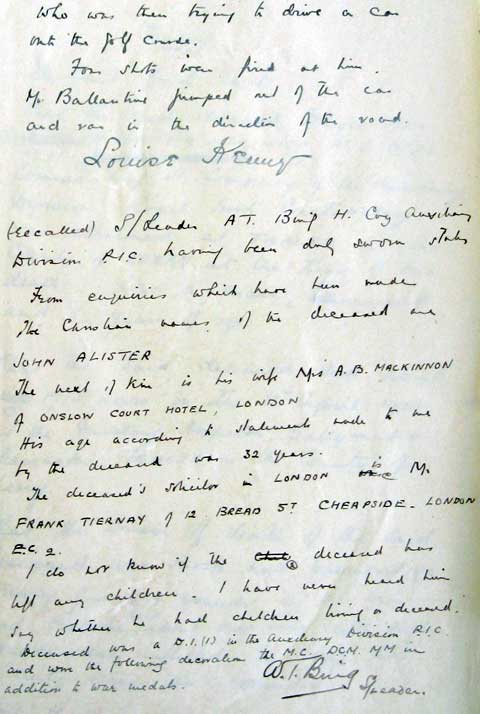 who was then trying to drive a car
onto the golf course.
Four shots were fired at him.
Mr Ballantine jumped out of the car
and ran in the direction of the road.
Louise
(Recalled) S/Leader A.T. Bing H. Coy Auxiliary
Division R.I.C. having been duly sworn states
From enquiries which have been made
The Christian names of the deceased are
JOHN ALISTER
The next of kin is his wife Mrs A.B. MACKINNON
of ONSLOW COURT HOTEL, LONDON
His age according to statements made to me
by the deceased was 32 years.
The deceased's solicitor in LONDON is Mr
FRANK TIERNAY of 12 BREAD ST CHEAPSIDE - LONDON
E.C. 2.
I do not know if the deceased has
left any children. I have never heard him
say whether he had children living or deceased.
Deceased was a D.I.(1) in the Auxiliary Division R.I.C.
and wore the following decoration the M.C. DCM. MM in
addition to war medals.
A.T. Bing
S/Leader.